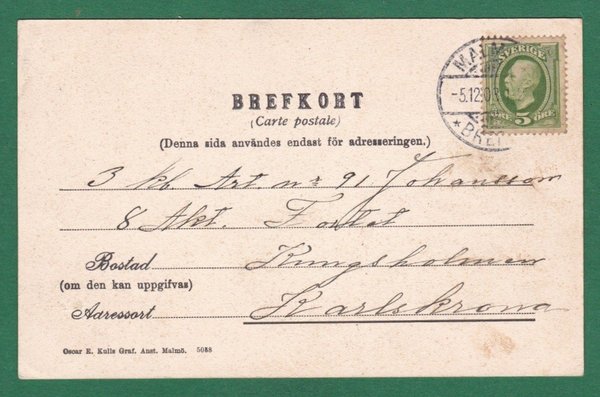 BREFKORT
(Carte postale)
(Denna sida användes endast för adresseringen.)
MALMÖ
-5.12.03
* BREF
SVERIGE
ÖRE 5 ÖRE
3 kb. Art. nr 91 Johansson
8 Akt. Fortet
Bostad Kungsholmen
(om den kan uppgifvas)
Adressort Karlskrona
Oscar E. Kulls Graf. Anst. Malmö. 5088